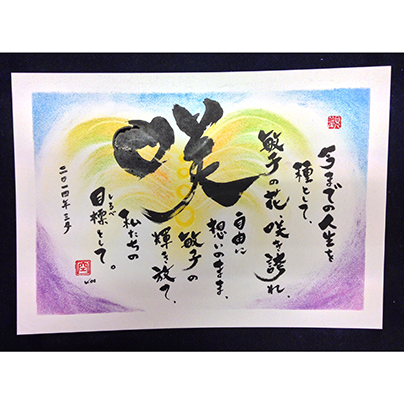 咲
今までの人生を
種として、
敏子の花 咲き誇れ、
自由に
想いのまま、
敏子の
輝き放て、
私たちの
しるべ
目標として。
二〇一四年 三月